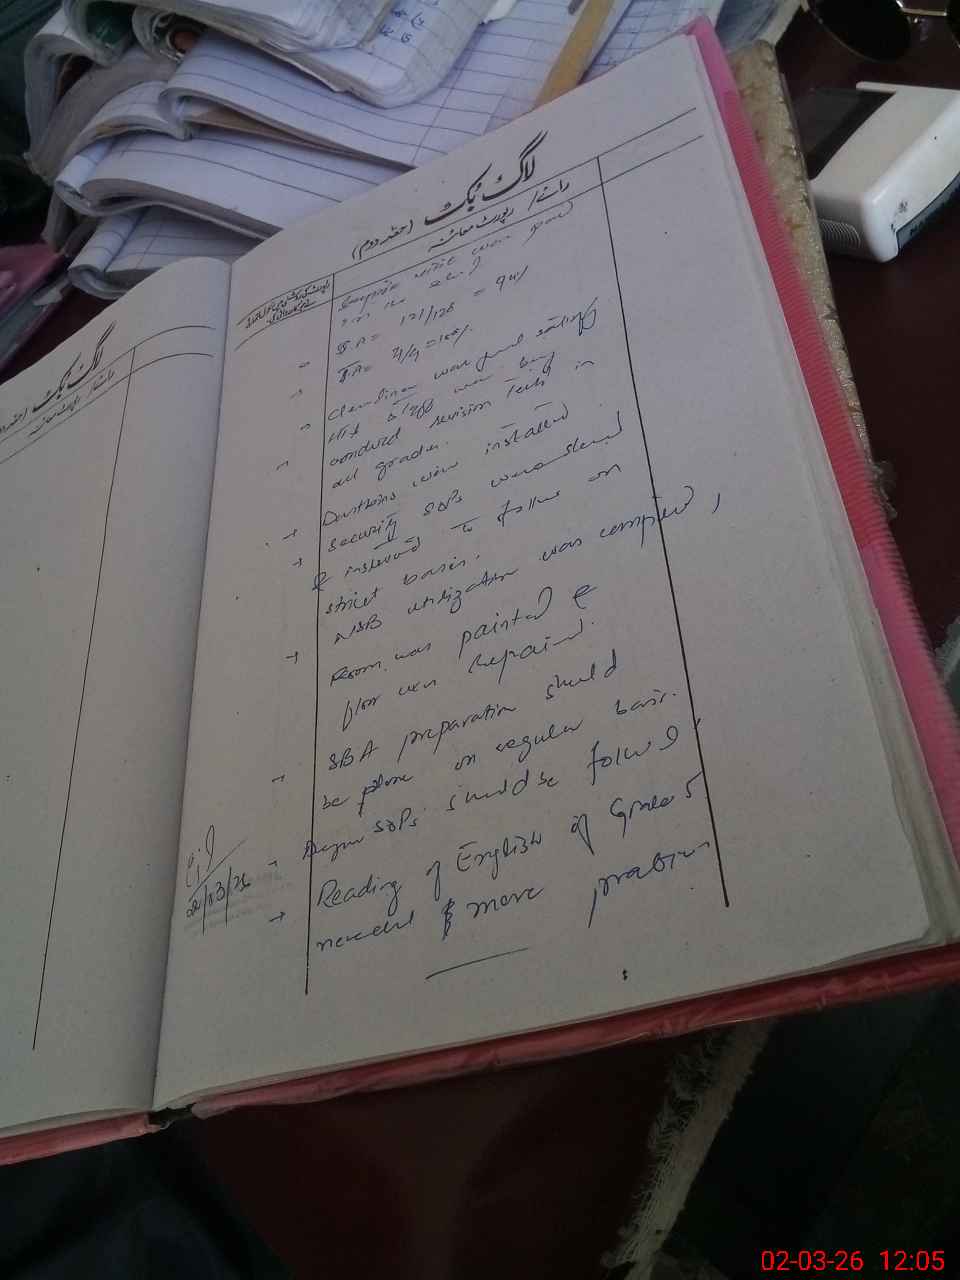 لاگ بک (حصہ دوم)
رائے / رپورٹ معائنہ
visit was
S A = 121/128 = 94%
T A = 4/4 = 100%
Cleanliness was good
HT & staff were busy
conduct revision tests in
all grades.
Dustbins were installed
security SOPs were shared
& instructed to follow on
strict basis.
NSB utilization was completed,
Room was painted &
floor were repaired.
SBA preparation should
be done on regular basis.
SOPs should be followed,
Reading of English of Grade 5
needed more practice
02/03/26
لاگ بک
رائے / رپورٹ معائنہ
02-03-26 12:05